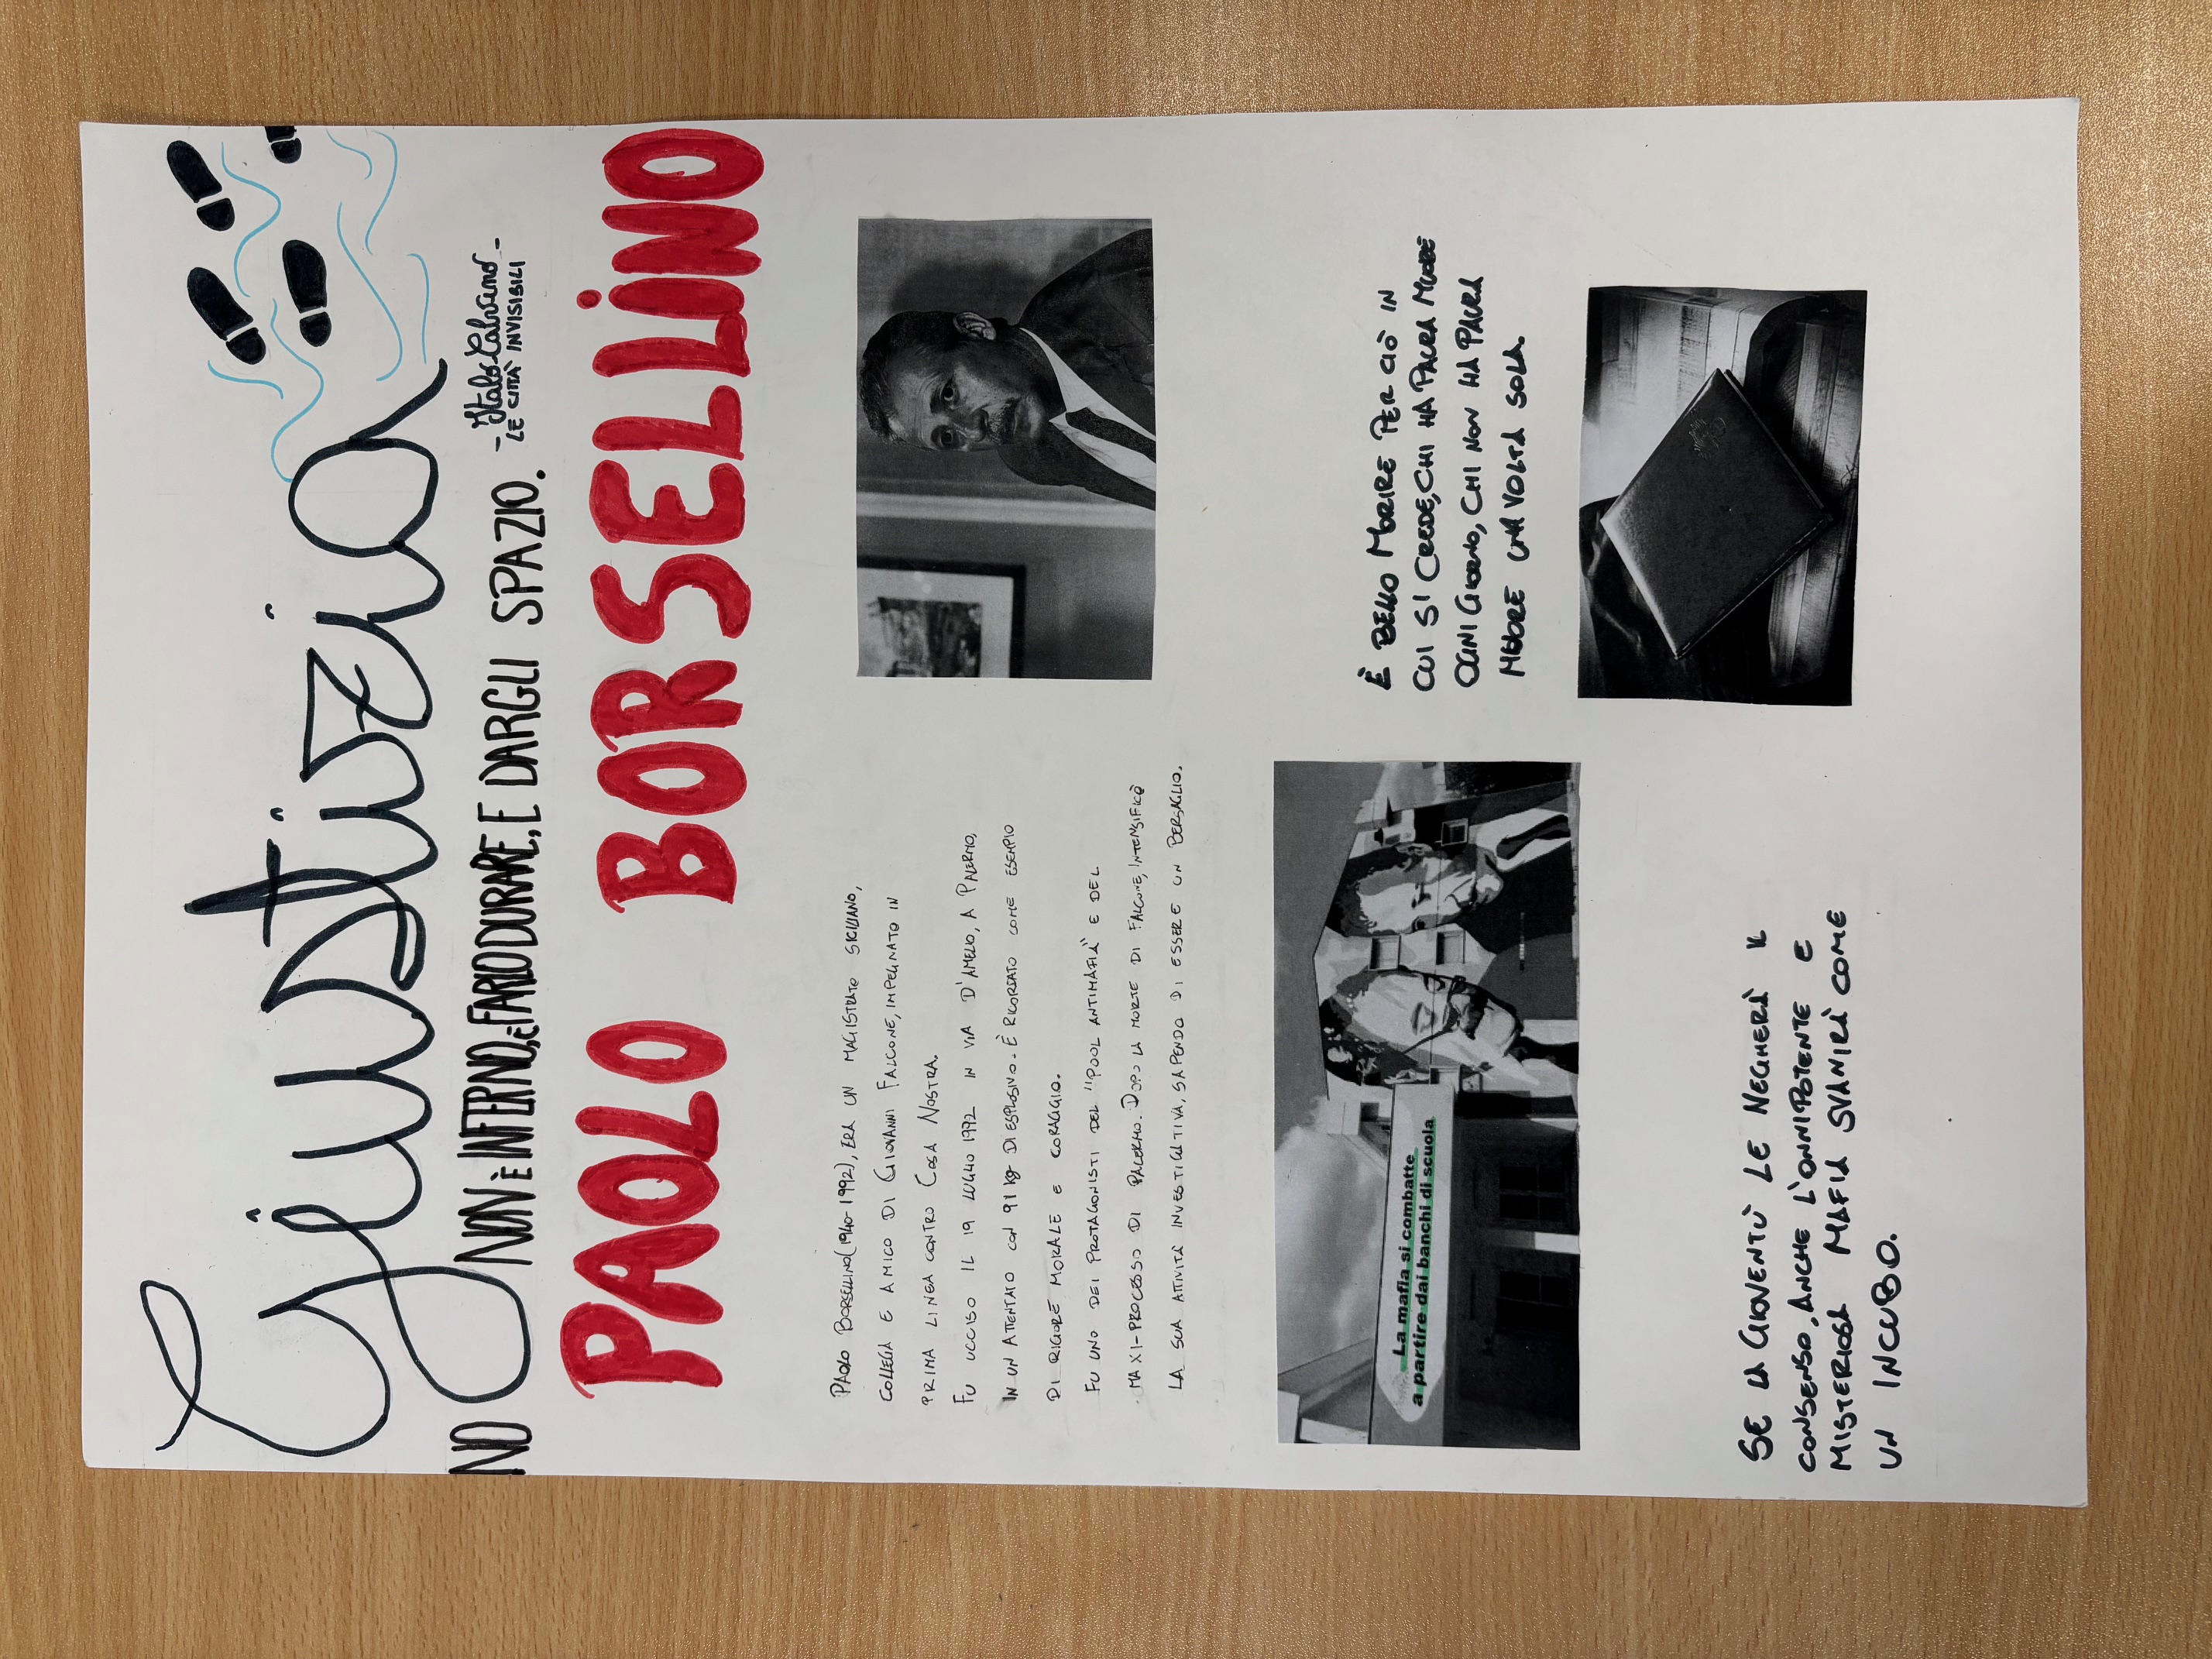 Giustizia
NO NON È INFERNO, È FARLO DURARE, E DARGLI SPAZIO.
- Italo Calvino -
LE CITTÀ INVISIBILI
PAOLO BORSELLINO
PAOLO BORSELLINO (1940-1992), ERA UN MAGISTRATO SICILIANO,
COLLEGA E AMICO DI GIOVANNI FALCONE, IMPEGNATO IN
PRIMA LINEA CONTRO COSA NOSTRA.
FU UCCISO IL 19 LUGLIO 1992 IN VIA D'AMELIO, A PALERMO,
IN UN ATTENTATO CON 91 kg DI ESPLOSIVO. È RICORDATO COME ESEMPIO
DI RIGORE MORALE E CORAGGIO.
FU UNO DEI PROTAGONISTI DEL "POOL ANTIMAFIA" E DEL
MAXI-PROCESSO DI PALERMO. DOPO LA MORTE DI FALCONE, INTENSIFICÒ
LA SUA ATTIVITÀ INVESTIGATIVA, SAPENDO DI ESSERE UN BERSAGLIO.
La mafia si combatte
a partire dai banchi di scuola
È BELLO MORIRE PER CIÒ IN
CUI SI CREDE, CHI HA PAURA MUORE
OGNI GIORNO, CHI NON HA PAURA
MUORE UNA VOLTA SOLA.
SE LA GIOVENTÙ LE NEGHERÀ IL
CONSENSO, ANCHE L'ONNIPOTENTE E
MISTERIOSA MAFIA SVANIRÀ COME
UN INCUBO.